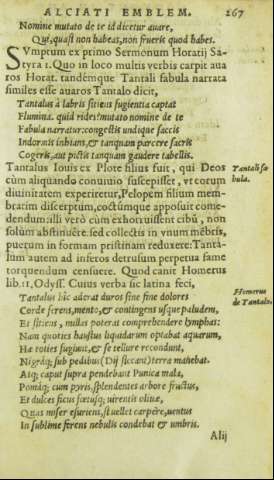 ALCIATI EMBLEM. 267
Nomine mutato de te id dicetur auare,
Qui, quasi non habeas, non frueris quod habes.
SVmptum ex primo Sermonum Horatij Sa-
tyra 1. Quo in loco multis verbis carpit aua
ros Horat. tandémque Tantali fabula narrata
similes esse auaros Tantalo dicit,
Tantalus à labris sitiens fugientia captat
Flumina. quid rides? mutato nomine de te
Fabula narratur: congestis undique saccis
Indormis inhians, & tanquam parcere sacris
Cogeris, aut pictis tanquam gaudere tabellis.
Tantalus Iouis ex Plote filius fuit, qui Deos
cùm aliquando conuiuio suscepisset, vt eorum
diuinitatem experiretur, Pelopem filium mem-
bratim discerptum, coctúmque apposuit come-
dendum: illi verò cùm exhorruissent cibũ, non
solùm abstinuêre. sed collectis in vnum mẽbris,
puerum in formam pristinam reduxere: Tanta-
lum autem ad inferos detrusum perpetua fame
torquendum censuere. Quod canit Homerus
lib. 11, Odyss. Cuius verba sic latina feci,
Tantalus hîc aderat duros sine fine dolores
Corde ferens, mento, & contingens usque paludem,
Et sitiens, nullas poterat comprehendere lymphas:
Nam quoties haustus liquidarum optabat aquarum,
Hæ toties fugiunt, & se tellure recondunt,
Nigráq; sub pedibus (Dij siccant) terra manebat.
Atq; caput supra pendebant Punica mala,
Pomáq; cum pyris, splendentes arbore fructus,
Et dulces ficus fœtusq; uirentis oliuæ,
Quas miser esuriens, si uellet carpere, uentus
In sublime ferens nebulis condebat & umbris.
Alij
Tantali fa-
bula.
Homerus
de Tantalo.